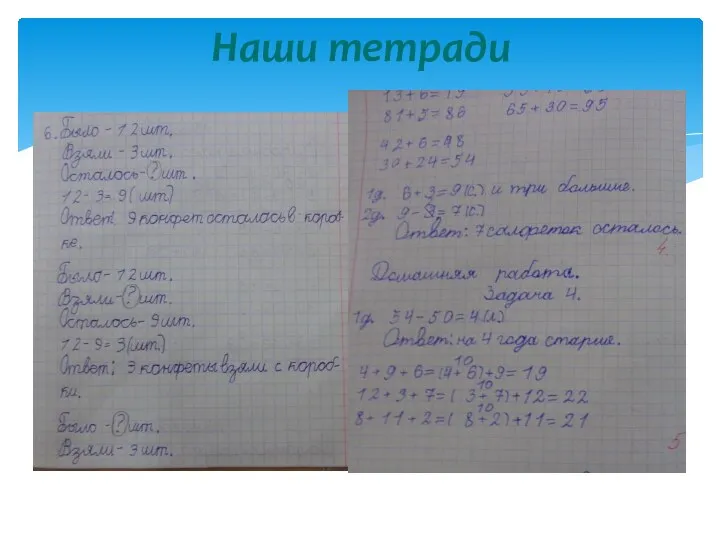 Наши тетради
6. Было - 12 шт.
Взяли - 3 шт.
Осталось - ? шт.
12 - 3 = 9 (шт)
Ответ: 9 конфет осталась в короб-
ке.
Было - 12 шт.
Взяли - ? шт.
Осталось - 9 шт.
12 - 9 = 3 (шт.)
Ответ: 3 конфеты взяли с короб-
ки.
Было - ? шт.
Взяли - 3 шт.
13 + 6 = 19
81 + 5 = 86 65 + 30 = 95
42 + 6 = 48
30 + 24 = 54
1д. 6 + 3 = 9 (с.) и три больше.
2д. 9 - 2 = 7 (с.)
Ответ: 7 салфеток осталось.
4
Домашняя работа.
Задача 4.
1д. 54 - 50 = 4 (л)
Ответ: на 4 года старше.
10
4 + 9 + 6 = (4 + 6) + 9 = 19
10
12 + 3 + 7 = ( 3 + 7) + 12 = 22
10
8 + 11 + 2 = ( 8 + 2) + 11 = 21
5